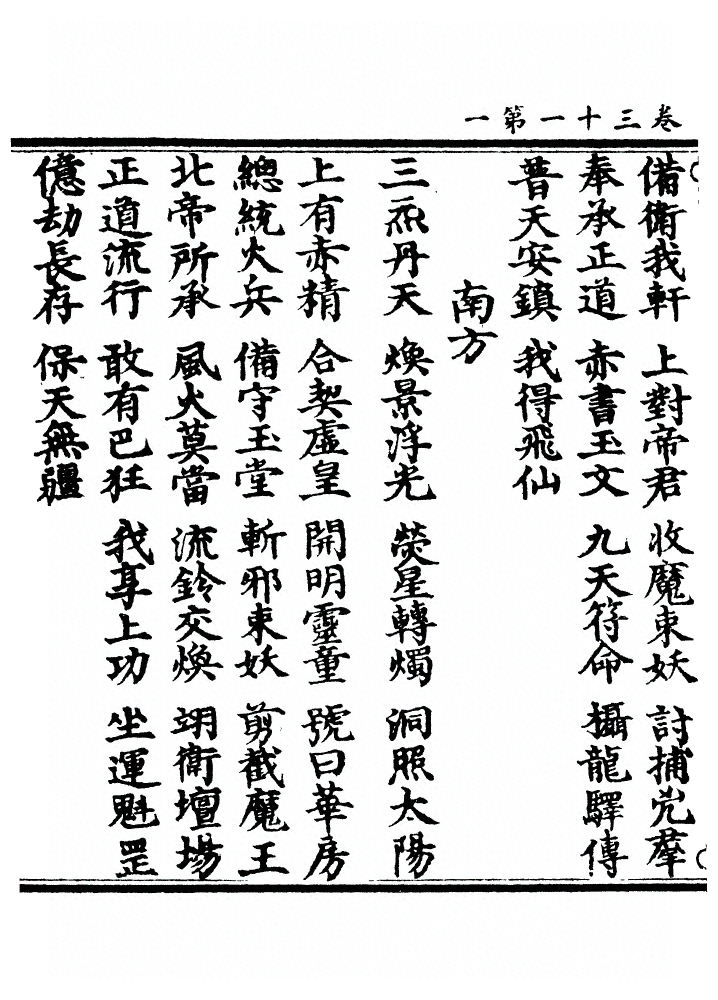 卷三十一第一
備衛我軒 上對帝君 收魔束妖 討捕㐫羣
奉承正道 赤書玉文 九天符命 攝龍驛傳
普天安鎮 我得飛仙
南方
三炁丹天 煥景浮光 熒星轉燭 洞照太陽
上有赤精 合契虛皇 開明靈童 號曰華房
總統火兵 備守玉堂 斬邪束妖 剪截魔王
北帝所承 風火莫當 流鈴交煥 翊衛壇場
正道流行 敢有巴狂 我享上功 坐運魁罡
億劫長存 保天無疆